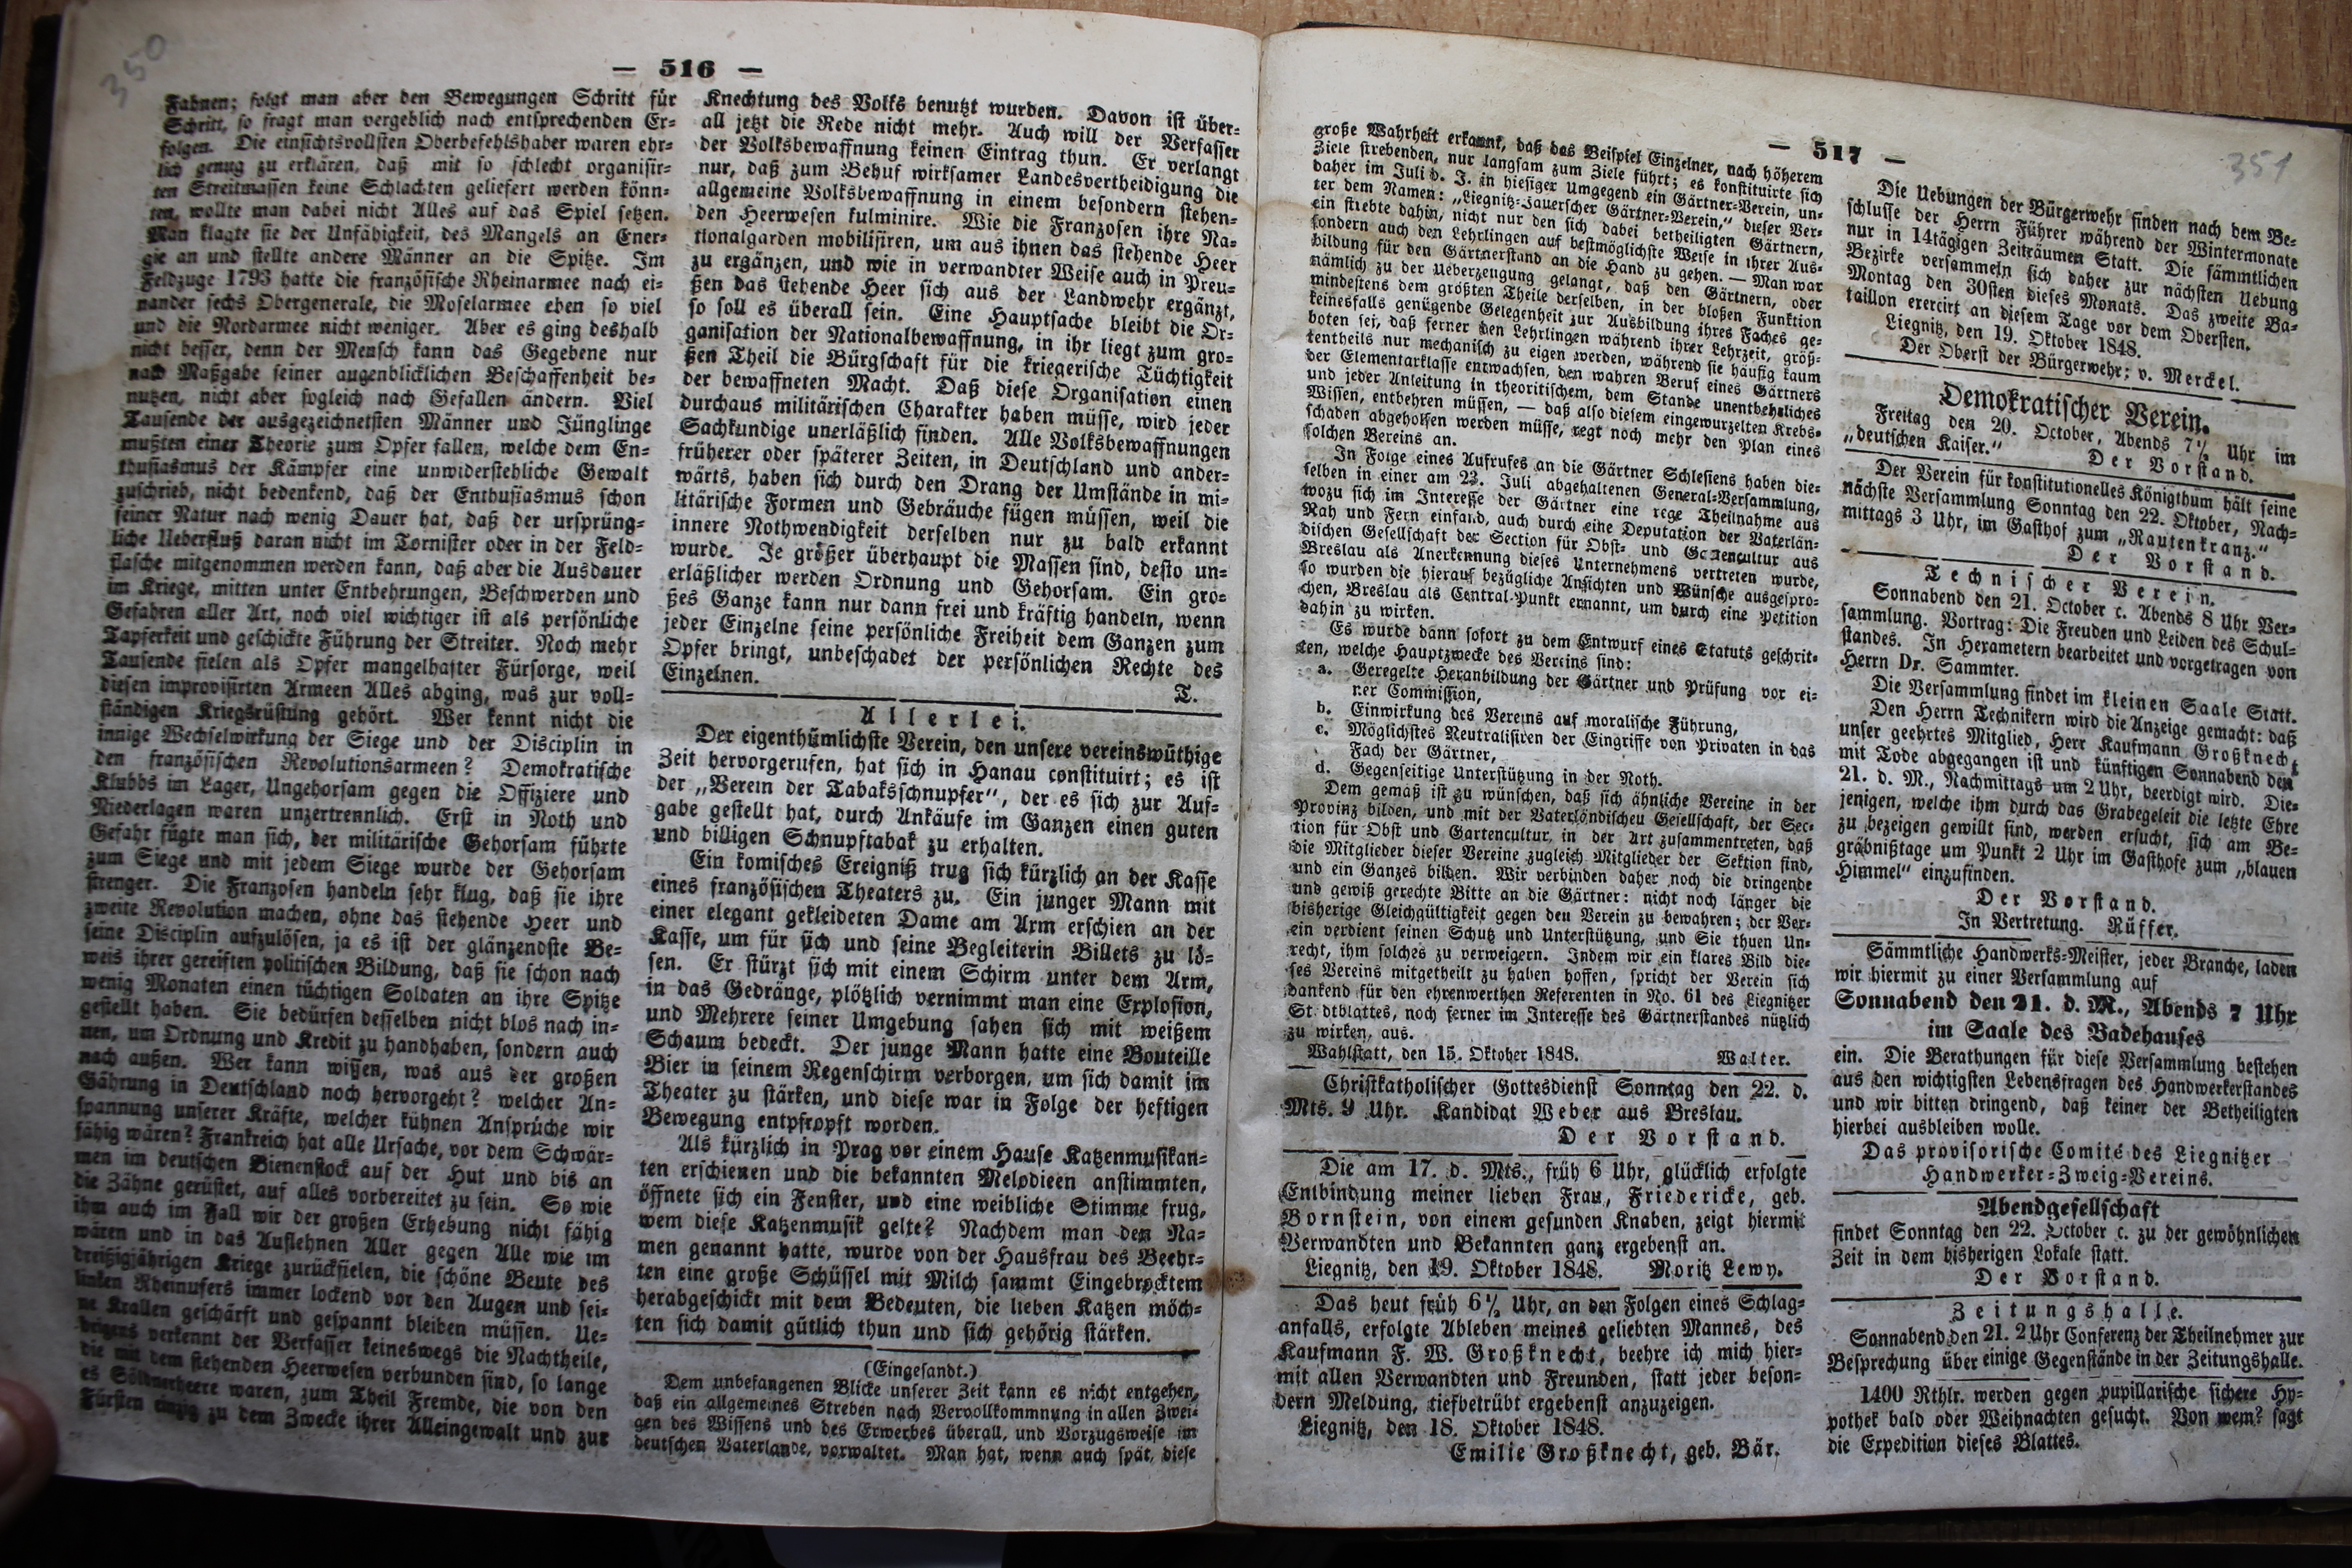 350
— 516 —
Fahnen; folgt man aber den Bewegungen Schritt für
Schritt, so fragt man vergeblich nach entsprechenden Er-
folgen. Die einsichtsvollsten Oberbefehlshaber waren ehr-
lich genug zu erklären, daß mit so schlecht organisir-
ten Streitmassen keine Schlachten geliefert werden könn-
ten, wollte man dabei nicht Alles auf das Spiel setzen.
Man klagte sie der Unfähigkeit, des Mangels an Ener-
gie an und stellte andere Männer an die Spitze. Im
Feldzuge 1793 hatte die französische Rheinarmee nach ei-
nander sechs Obergenerale, die Moselarmee eben so viel
und die Nordarmee nicht weniger. Aber es ging deshalb
nicht besser, denn der Mensch kann das Gegebene nur
nach Maßgabe seiner augenblicklichen Beschaffenheit be-
nutzen, nicht aber sogleich nach Gefallen ändern. Viel
Tausende der ausgezeichnetsten Männer und Jünglinge
mußten einer Theorie zum Opfer fallen, welche dem En-
thusiasmus der Kämpfer eine unwiderstehliche Gewalt
zuschrieb, nicht bedenkend, daß der Enthusiasmus schon
seiner Natur nach wenig Dauer hat, daß der ursprüng-
liche Ueberfluß daran nicht im Tornister oder in der Feld-
flasche mitgenommen werden kann, daß aber die Ausdauer
im Kriege, mitten unter Entbehrungen, Beschwerden und
Gefahren aller Art, noch viel wichtiger ist als persönliche
Tapferkeit und geschickte Führung der Streiter. Noch mehr
Tausende fielen als Opfer mangelhafter Fürsorge, weil
diesen improvisirten Armeen Alles abging, was zur voll-
ständigen Kriegsrüstung gehört. Wer kennt nicht die
innige Wechselwirkung der Siege und der Disciplin in
den französischen Revolutionsarmeen? Demokratische
Klubbs im Lager, Ungehorsam gegen die Offiziere und
Niederlagen waren unzertrennlich. Erst in Noth und
Gefahr fügte man sich, der militärische Gehorsam führte
zum Siege und mit jedem Siege wurde der Gehorsam
strenger. Die Franzosen handeln sehr klug, daß sie ihre
zweite Revolution machen, ohne das stehende Heer und
seine Disciplin aufzulösen, ja es ist der glänzendste Be-
weis ihrer gereiften politischen Bildung, daß sie schon nach
wenig Monaten einen tüchtigen Soldaten an ihre Spitze
gestellt haben. Sie bedürfen desselben nicht blos nach in-
nen, um Ordnung und Kredit zu handhaben, sondern auch
nach außen. Wer kann wißen, was aus der großen
Gährung in Deutschland noch hervorgeht? welcher An-
spannung unserer Kräfte, welcher kühnen Ansprüche wir
fähig wären? Frankreich hat alle Ursache, vor dem Schwär-
men im deutschen Bienenstock auf der Hut und bis an
die Zähne gerüstet, auf alles vorbereitet zu sein. So wie
ihm auch im Fall wir der großen Erhebung nicht fähig
wären und in das Auflehnen Aller gegen Alle wie im
dreißigjährigen Kriege zurückfielen, die schöne Beute des
linken Rheinufers immer lockend vor den Augen und sei-
ne Krallen geschärft und gespannt bleiben müssen. Ue-
brigens verkennt der Verfasser keineswegs die Nachtheile,
die mit dem stehenden Heerwesen verbunden sind, so lange
es Söldnerheere waren, zum Theil Fremde, die von den
Fürsten einzig zu dem Zwecke ihrer Alleingewalt und zur
Knechtung des Volks benutzt wurden. Davon ist über-
all jetzt die Rede nicht mehr. Auch will der Verfasser
der Volksbewaffnung keinen Eintrag thun. Er verlangt
nur, daß zum Behuf wirksamer Landesvertheidigung die
allgemeine Volksbewaffnung in einem besondern stehen-
den Heerwesen kulminire. Wie die Franzosen ihre Na-
tionalgarden mobilisiren, um aus ihnen das stehende Heer
zu ergänzen, und wie in verwandter Weise auch in Preu-
ßen das stehende Heer sich aus der Landwehr ergänzt,
so soll es überall sein. Eine Hauptsache bleibt die Or-
ganisation der Nationalbewaffnung, in ihr liegt zum gro-
ßen Theil die Bürgschaft für die kriegerische Tüchtigkeit
der bewaffneten Macht. Daß diese Organisation einen
durchaus militärischen Charakter haben müsse, wird jeder
Sachkundige unerläßlich finden. Alle Volksbewaffnungen
früherer oder späterer Zeiten, in Deutschland und ander-
wärts, haben sich durch den Drang der Umstände in mi-
litärische Formen und Gebräuche fügen müssen, weil die
innere Nothwendigkeit derselben nur zu bald erkannt
wurde. Je größer überhaupt die Massen sind, desto un-
erläßlicher werden Ordnung und Gehorsam. Ein gro-
ßes Ganze kann nur dann frei und kräftig handeln, wenn
jeder Einzelne seine persönliche Freiheit dem Ganzen zum
Opfer bringt, unbeschadet der persönlichen Rechte des
Einzelnen.
T.
Allerlei.
Der eigenthümlichste Verein, den unsere vereinswüthige
Zeit hervorgerufen, hat sich in Hanau constituirt; es ist
der „Verein der Tabaksschnupfer", der es sich zur Auf-
gabe gestellt hat, durch Ankäufe im Ganzen einen guten
und billigen Schnupftabak zu erhalten.
Ein komisches Ereigniß trug sich kürzlich an der Kasse
eines französischen Theaters zu. Ein junger Mann mit
einer elegant gekleideten Dame am Arm erschien an der
Kasse, um für sich und seine Begleiterin Billets zu lö-
sen. Er stürzt sich mit einem Schirm unter dem Arm,
in das Gedränge, plötzlich vernimmt man eine Explosion,
und Mehrere seiner Umgebung sahen sich mit weißem
Schaum bedeckt. Der junge Mann hatte eine Bouteille
Bier in seinem Regenschirm verborgen, um sich damit im
Theater zu stärken, und diese war in Folge der heftigen
Bewegung entpfropft worden.
Als kürzlich in Prag vor einem Hause Katzenmusikan-
ten erschienen und die bekannten Melodieen anstimmten,
öffnete sich ein Fenster, und eine weibliche Stimme frug,
wem diese Katzenmusik gelte? Nachdem man den Na-
men genannt hatte, wurde von der Hausfrau des Beehr-
ten eine große Schüssel mit Milch sammt Eingebrocktem
herabgeschickt mit dem Bedeuten, die lieben Katzen möch-
ten sich damit gütlich thun und sich gehörig stärken.
(Eingesandt.)
Dem unbefangenen Blicke unserer Zeit kann es nicht entgehen,
daß ein allgemeines Streben nach Vervollkommnung in allen Zwei-
gen des Wissens und des Erwerbes überall, und Vorzugsweise im
deutschen Vaterlande, vorwaltet. Man hat, wenn auch spät, diese
— 517 —
351
große Wahrheit erkannt, daß das Beispiel Einzelner, nach höherem
Ziele strebenden, nur langsam zum Ziele führt; es konstituirte sich
daher im Juli d. J. in hiesiger Umgegend ein Gärtner-Verein, un-
ter dem Namen: „Liegnitz-Jauerscher Gärtner-Verein," dieser Ver-
ein strebte dahin, nicht nur den sich dabei betheiligten Gärtnern,
sondern auch den Lehrlingen auf bestmöglichste Weise in ihrer Aus-
bildung für den Gärtnerstand an die Hand zu gehen. — Man war
nämlich zu der Ueberzeugung gelangt, daß den Gärtnern, oder
mindestens dem größten Theile derselben, in der bloßen Funktion
keinesfalls genügende Gelegenheit zur Ausbildung ihres Faches ge-
boten sei, daß ferner den Lehrlingen während ihrer Lehrzeit, größ-
tentheils nur mechanisch zu eigen werden, während sie häufig kaum
der Elementarklasse entwachsen, den wahren Beruf eines Gärtners
und jeder Anleitung in theoritischem, dem Stande unentbehrliches
Wissen, entbehren müssen, — daß also diesem eingewurzelten Krebs-
schaden abgeholfen werden müsse, regt noch mehr den Plan eines
solchen Vereins an.
In Folge eines Aufrufes an die Gärtner Schlesiens haben die-
selben in einer am 23. Juli abgehaltenen General-Versammlung,
wozu sich im Interesse der Gärtner eine rege Theilnahme aus
Nah und Fern einfand, auch durch eine Deputation der Vaterlän-
dischen Gesellschaft der Section für Obst- und Gartencultur aus
Breslau als Anerkennung dieses Unternehmens vertreten wurde,
so wurden die hierauf bezügliche Ansichten und Wünsche ausgespro-
chen, Breslau als Central-Punkt ernannt, um durch eine Petition
dahin zu wirken.
Es wurde dann sofort zu dem Entwurf eines Statuts geschrit-
ten, welche Hauptzwecke des Vereins sind:
a. Geregelte Heranbildung der Gärtner und Prüfung vor ei-
ner Commission,
b. Einwirkung des Vereins auf moralische Führung,
c. Möglichstes Neutralisiren der Eingriffe von Privaten in das
Fach der Gärtner,
d. Gegenseitige Unterstützung in der Noth.
Dem gemäß ist zu wünschen, daß sich ähnliche Vereine in der
Provinz bilden, und mit der Vaterländischen Gesellschaft, der Sec-
tion für Obst und Gartencultur, in der Art zusammentreten, daß
die Mitglieder dieser Vereine zugleich Mitglieder der Sektion sind,
und ein Ganzes bilden. Wir verbinden daher noch die dringende
und gewiß gerechte Bitte an die Gärtner: nicht noch länger die
bisherige Gleichgültigkeit gegen den Verein zu bewahren; der Ver-
ein verdient seinen Schutz und Unterstützung, und Sie thuen Un-
recht, ihm solches zu verweigern. Indem wir ein klares Bild die-
ses Vereins mitgetheilt zu haben hoffen, spricht der Verein sich
dankend für den ehrenwerthen Referenten in No. 61 des Liegnitzer
St dtblattes, noch ferner im Interesse des Gärtnerstandes nützlich
zu wirken, aus.
Wahlstatt, den 15. Oktober 1848. Walter.
Christkatholischer Gottesdienst Sonntag den 22. d.
Mts. 9 Uhr. Kandidat Weber aus Breslau.
Der Vorstand.
Die am 17. d. Mts., früh 6 Uhr, glücklich erfolgte
Entbindung meiner lieben Frau, Friedericke, geb.
Bornstein, von einem gesunden Knaben, zeigt hiermit
Verwandten und Bekannten ganz ergebenst an.
Liegnitz, den 19. Oktober 1848. Moritz Lewy.
Das heut früh 6½ Uhr, an den Folgen eines Schlag-
anfalls, erfolgte Ableben meines geliebten Mannes, des
Kaufmann F. W. Großknecht, beehre ich mich hier-
mit allen Verwandten und Freunden, statt jeder beson-
dern Meldung, tiefbetrübt ergebenst anzuzeigen.
Liegnitz, den 18. Oktober 1848.
Emilie Großknecht, geb. Bär.
Die Uebungen der Bürgerwehr finden nach dem Be-
schlusse der Herrn Führer während der Wintermonate
nur in 14tägigen Zeiträumen Statt. Die sämmtlichen
Bezirke versammeln sich daher zur nächsten Uebung
Montag den 30sten dieses Monats. Das zweite Ba-
taillon exercirt an diesem Tage vor dem Obersten.
Liegnitz, den 19. Oktober 1848.
Der Oberst der Bürgerwehr; v. Merckel.
Demokratischer Verein.
Freitag den 20. October, Abends 7½ Uhr im
„deutschen Kaiser." Der Vorstand.
Der Verein für konstitutionelles Königthum hält seine
nächste Versammlung Sonntag den 22. Oktober, Nach-
mittags 3 Uhr, im Gasthof zum „Rautenkranz."
Der Vorstand.
Technischer Verein.
Sonnabend den 21. October c. Abends 8 Uhr Ver-
sammlung. Vortrag: Die Freuden und Leiden des Schul-
standes. In Hexametern bearbeitet und vorgetragen von
Herrn Dr. Sammter.
Die Versammlung findet im kleinen Saale Statt.
Den Herrn Technikern wird die Anzeige gemacht: daß
unser geehrtes Mitglied, Herr Kaufmann Großknecht
mit Tode abgegangen ist und künftigen Sonnabend den
21. d. M., Nachmittags um 2 Uhr, beerdigt wird. Die-
jenigen, welche ihm durch das Grabegeleit die letzte Ehre
zu bezeigen gewillt sind, werden ersucht, sich am Be-
gräbnißtage um Punkt 2 Uhr im Gasthofe zum „blauen
Himmel" einzufinden.
Der Vorstand.
In Vertretung. Rüffer.
Sämmtliche Handwerks-Meister, jeder Branche, laden
wir hiermit zu einer Versammlung auf
Sonnabend den 21. d. M., Abends 7 Uhr
im Saale des Badehauses
ein. Die Berathungen für diese Versammlung bestehen
aus den wichtigsten Lebensfragen des Handwerkerstandes
und wir bitten dringend, daß keiner der Betheiligten
hierbei ausbleiben wolle.
Das provisorische Comité des Liegnitzer
Handwerker-Zweig-Vereins.
Abendgesellschaft
findet Sonntag den 22. October c. zu der gewöhnlichen
Zeit in dem bisherigen Lokale statt.
Der Vorstand.
Zeitungshalle.
Sonnabend den 21. 2 Uhr Conferenz der Theilnehmer zur
Besprechung über einige Gegenstände in der Zeitungshalle.
1400 Rthlr. werden gegen pupillarische sichere Hy-
pothek bald oder Weihnachten gesucht. Von wem? sagt
die Expedition dieses Blattes.